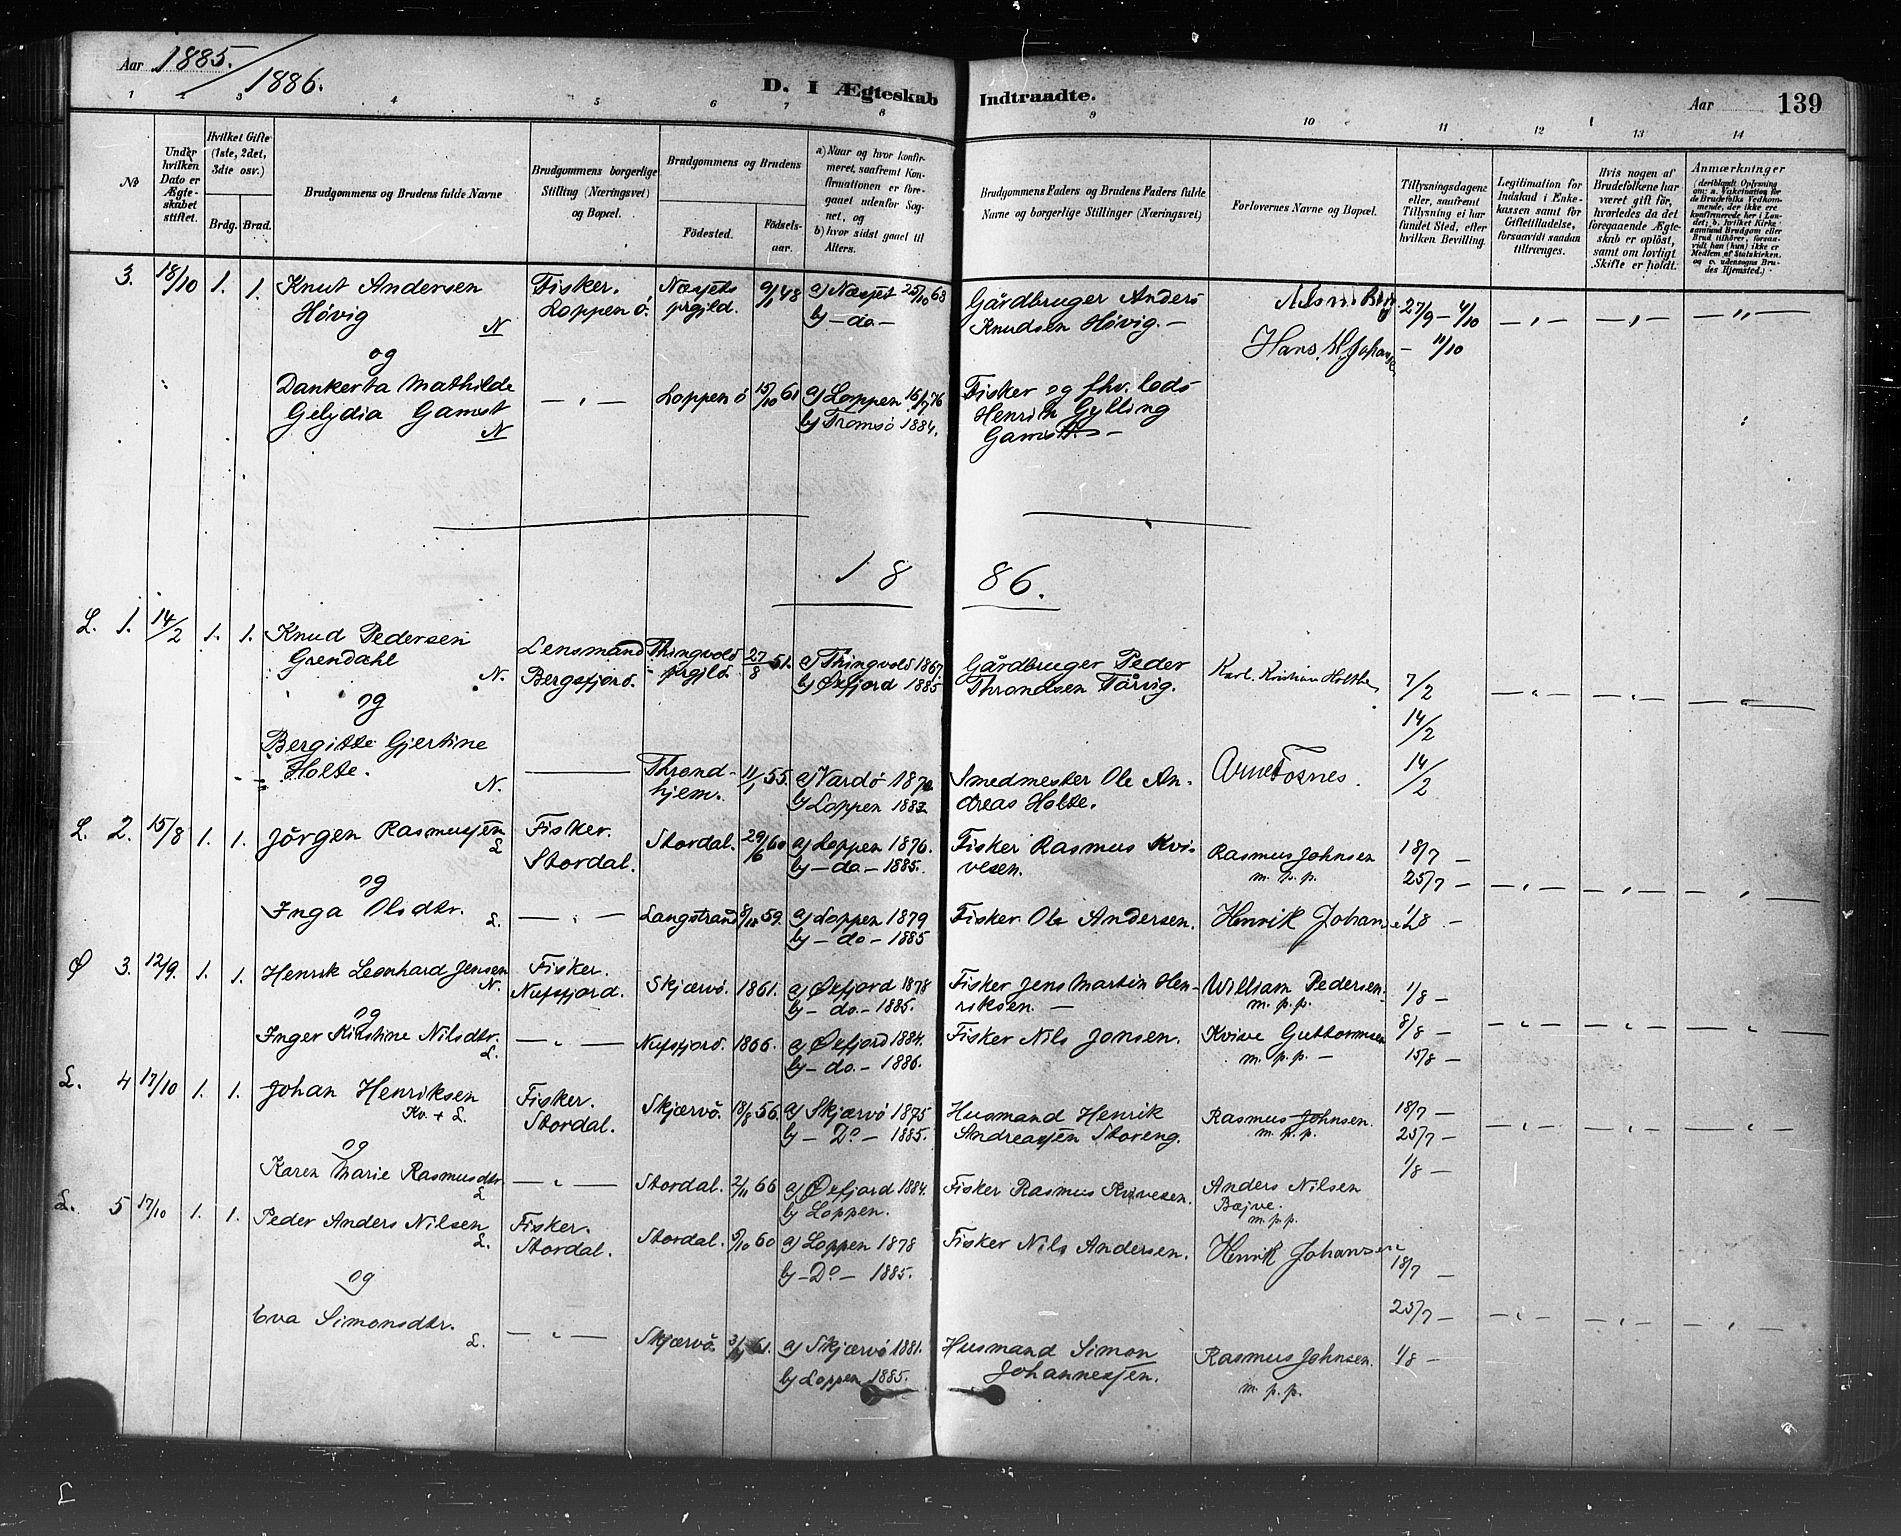 Aar 1885./1886.
D. I Ægteskab Indtraadte.
Aar 139
1 2 3 4 5 6 7 8 9 10 11 12 13 14
No
Under hvilken Dato er Ægteskabet stiftet.
Hvilket Gifte (1ste, 2det, 3die osv.)
Brdg. Brud.
Brudgommens og Brudens fulde Navne
Brudgommens borgerlige Stilling (Næringsvei) og Bopæl.
Brudgommens og Brudens
Fødested. Fødselsaar.
a) Naar og hvor konfirmeret, saafremt Konfirmationen er foregaaet udenfor Sognet, og
b) hvor sidst gaaet til Alters.
Brudgommens Faders og Brudens Faders fulde Navne og borgerlige Stillinger (Næringsvei)
Forlovernes Navne og Bopæl.
Tillysningsdagene eller, saafremt Tillysning ei har fundet Sted, efter hvilken Bevilling.
Legitimation for Indskud i Enkekassen samt for Giftetilladelse, forsaavidt saadan tiltrænges.
Hvis nogen af Brudefolkene har været gift før, hvorledes da det foregaaende Ægteskab er opløst, samt om lovligt Skifte er holdt.
Anmærkninger
(deriblandt Oplysning om: a. Vakcination for de Brudefolks Vedkommende, der ikke ere konfirmerede her i Landet; b. hvilket Kirkesamfund Brudgom eller Brud tilhører, forsaavidt han (hun) ikke er Medlem af Statskirken, og c. udensogns Brudes Hjemsted.)
3. 18/10 1. 1. Knut Andersen Høvig N
Fisker. Loppen ö.
Næsjets prgjld. 9/11 48 a) Næsjet 25/10 63 b) – do –
Gårdbruger Anders Knudsen Høvig. –
27/9 – 4/10
Hans. – 11/10
og
Dankerta Mathilde Gelydia Gamst N
– " – Loppen ö 15/10 61 a) Loppen 16/7 76 b) Tromsö 1884.
Fisker og fhv. lods Henrik Gylling Gamst. –
18 86.
L. 1. 14/2 1. 1. Knud Pedersen Grendahl N.
Lensmand Bergsfjord.
Thingvold prgjld. 27/8 51. a) Thingvold 1867 b) Øxfjord 1885
Gårdbruger Peder Throndsen Tårvig.
Karl. Kristian Holtbe
7/2
14/2
og
Bergitte Gjertine Holte. N.
Throndhjem. 11/1 55 a) Vardö 1870 b) Loppen 1883
Smedmester Ole Andreas Holte.
Arne Fosnes.
14/2
L. 2. 15/8 1. 1. Jörgen Rasmussen L
Fisker. Stordal.
Stordal. 29/6 60 a) Loppen 1876. b) – do – 1885.
Fisker Rasmus Kvivesen.
Rasmus Johnsen m. p. p.
18/7 –
25/7 –
og
Inga Olsdtr. L.
– " – Langstrand 8/10 59. a) Loppen 1879 b) – do – 1885
Fisker Ole Andersen.
Henrik Johansen
1/8 –
Ø 3. 12/9. 1. 1. Henrik Leonhard Jensen N.
Fisker. Nufsfjord.
Skjærvö. 1861. a) Øxfjord 1878 b) – do – 1885.
Fisker Jens Martin Henriksen. –
William Pedersen. m. p. p.
1/8 –
og
Inger Kirstine Nilsdtr. L.
– " – Nufsfjord. 1866. a) Øxfjord 1884. b) – do – 1886.
Fisker Nils Jonsen.
Kvive Guttormsen m. p. p. –
8/8 –
15/8 –
L. 4 17/10 1. 1. Johan Henriksen Kv. + L.
Fisker. Stordal.
Skjærvö. 18/8 56. a) Skjærvö 1875 b) – Do – 1885.
Husmand Henrik Andreassen Storeng.
Rasmus Johnsen. m. p. p.
18/7 –
25/7 –
og
Karen Marie Rasmusdtr L.
– " – Stordal. 2/11 66 a) Øxfjord 1884. b) Loppen.
Fisker Rasmus Kvivesen.
Anders Nilsen Bæjve. m. p. p.
1/8 –
L. 5 17/10 1. 1. Peder Anders Nilsen L.
Fisker. Stordal.
Stordal. 9/10 60 a) Loppen 1878 b) – Do – 1885.
Fisker Nils Andersen.
Henrik Johansen
18/7 –
og
Eva Simonsdtr. L.
– " – Skjærvö. 61. a) Skjærvö 1881. b) Loppen 1885.
Husmand Simon Johannesen.
Rasmus Johnsen. m. p. p.
25/7 –
1/8 –